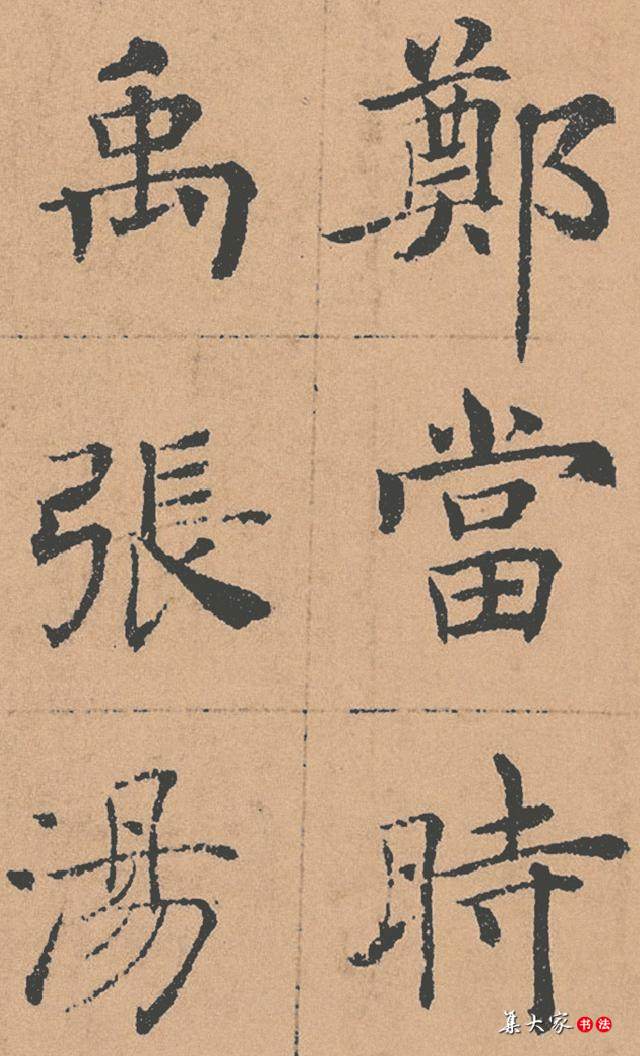 鄭當時
禹張湯
集大家书法